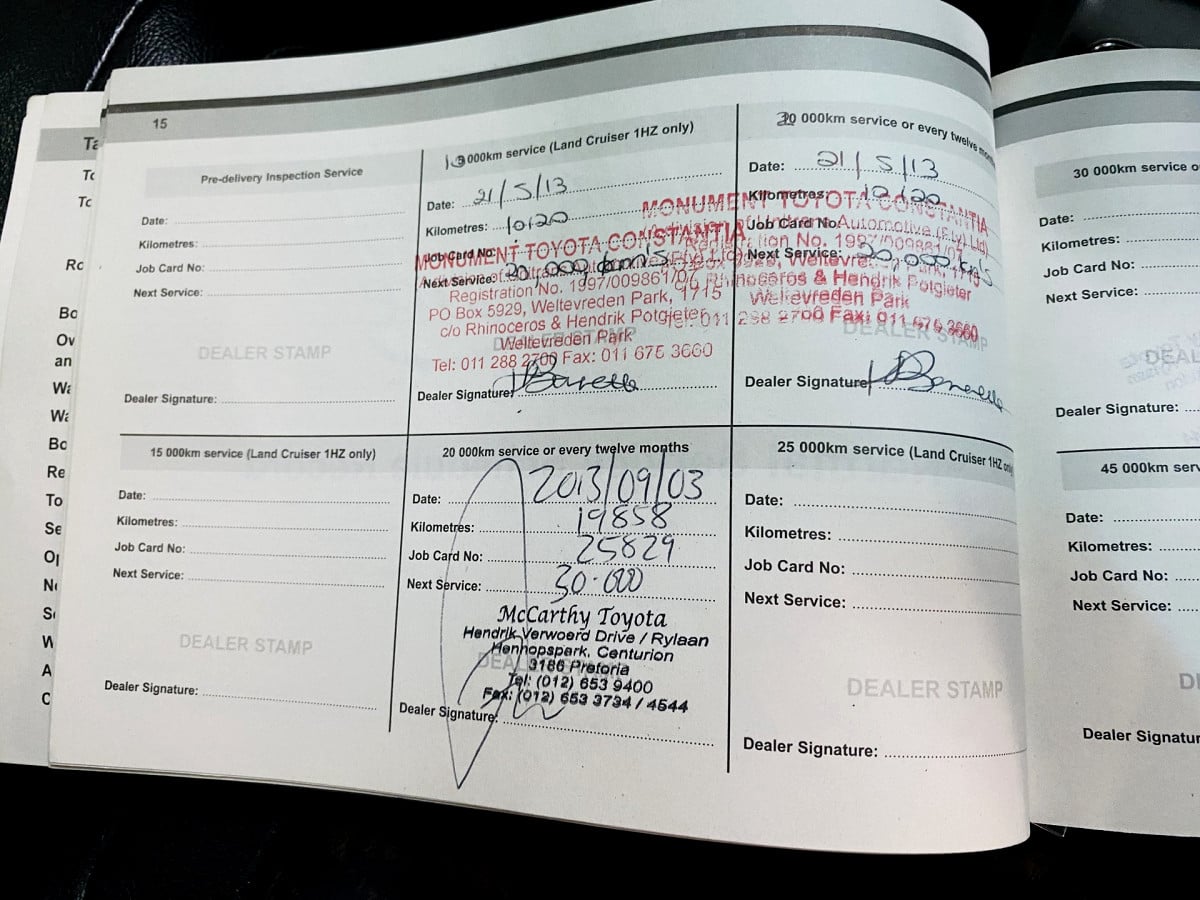 15
Pre-delivery Inspection Service
Date:
Kilometres:
Job Card No:
Next Service:
DEALER STAMP
Dealer Signature:
000km service (Land Cruiser 1HZ only)
Date: 21/5/13
Kilometres: 10120
Job Card No:
Next Service: 20,000 km's
MONUMENT TOYOTA CONSTANTIA
Registration No. 1997/009861/07
PO Box 5929, Weltevreden Park, 1715
c/o Rhinoceros & Hendrik Potgieter
Weltevreden Park
Tel: 011 288 2700 Fax: 011 675 3660
Dealer Signature:
000km service or every twelve months
Date: 21/5/13
Kilometres: 10120
Job Card No:
Next Service: 20,000 km's
MONUMENT TOYOTA CONSTANTIA
Automotive (Pty) Ltd
Registration No. 1997/009861/07
Rhinoceros & Hendrik Potgieter
Weltevreden Park
Tel: 011 288 2700 Fax: 011 675 3660
DEALER STAMP
Dealer Signature
15 000km service (Land Cruiser 1HZ only)
Date:
Kilometres:
Job Card No:
Next Service:
DEALER STAMP
Dealer Signature:
20 000km service or every twelve months
Date: 2013/09/03
Kilometres: 19858
Job Card No: 25829
Next Service: 30.000
McCarthy Toyota
Hendrik Verwoerd Drive / Rylaan
Hennopspark, Centurion
3186 Pretoria
Tel: (012) 653 9400
Fax: (012) 653 3734 / 4544
Dealer Signature:
25 000km service (Land Cruiser 1HZ only
Date:
Kilometres:
Job Card No:
Next Service:
DEALER STAMP
Dealer Signature:
30 000km service o
Date:
Kilometres:
Job Card No:
Next Service:
DEAL
Dealer Signature:
45 000km serv
Date:
Kilometres:
Job Card No:
Next Service:
Dealer Signatur
Ta
To
To
Ro
Bo
Ov
an
Wa
Wa
Bo
Re
To
Se
Op
No
Se
W
A
C